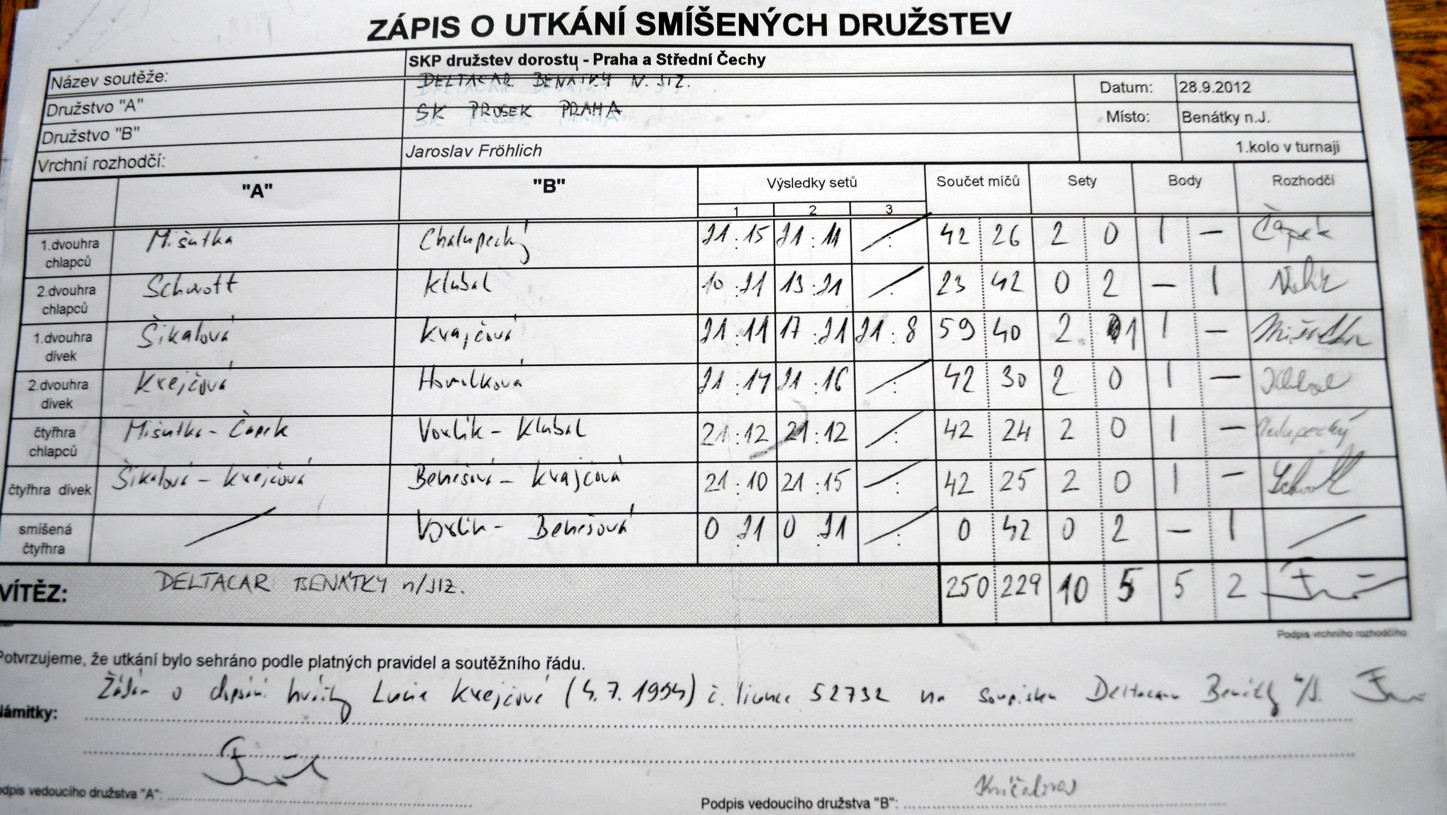 ZÁPIS O UTKÁNÍ SMÍŠENÝCH DRUŽSTEV
Název soutěže: SKP družstev dorostu - Praha a Střední Čechy
Družstvo "A" DELTACAR BENÁTKY N. JIZ. Datum: 28.9.2012
Družstvo "B" SK PROSEK PRAHA Místo: Benátky n.J.
Vrchní rozhodčí: Jaroslav Fröhlich 1.kolo v turnaji
"A" "B" Výsledky setů Součet míčů Sety Body Rozhodčí
1 2 3
1.dvouhra chlapců Mišutka Chalupecký 21:15 21:11 : 42 26 2 0 1 – Čapek
2.dvouhra chlapců Schwott Klubal 10:21 13:21 23 42 0 2 – 1
1.dvouhra dívek Šikalová Krajčová 21:11 17:21 21:8 59 40 2 1 1 – Mišutka
2.dvouhra dívek Krejčová Homolková 21:14 21:16 : 42 30 2 0 1 – Klubal
čtyřhra chlapců Mišutka - Čapek Voxlik - Klubal 21:12 21:12 : 42 24 2 0 1 – Chalupecký
čtyřhra dívek Šikalová - Krejčová Benešová - Krajčová 21:10 21:15 : 42 25 2 0 1 – Schwott
smíšená čtyřhra Voxlik - Benešová 0:21 0:21 : 0 42 0 2 – 1
VÍTĚZ: DELTACAR BENÁTKY n/JIZ. 250 229 10 5 5 2
Podpis vrchního rozhodčího
Potvrzujeme, že utkání bylo sehráno podle platných pravidel a soutěžního řádu.
Žádám o dopsání hráčky Lucie Krejčové (4.7.1994) č. licence 52732 na soupisku Deltacaru Benátky n/J.
Námitky:
podpis vedoucího družstva "A":
Podpis vedoucího družstva "B":